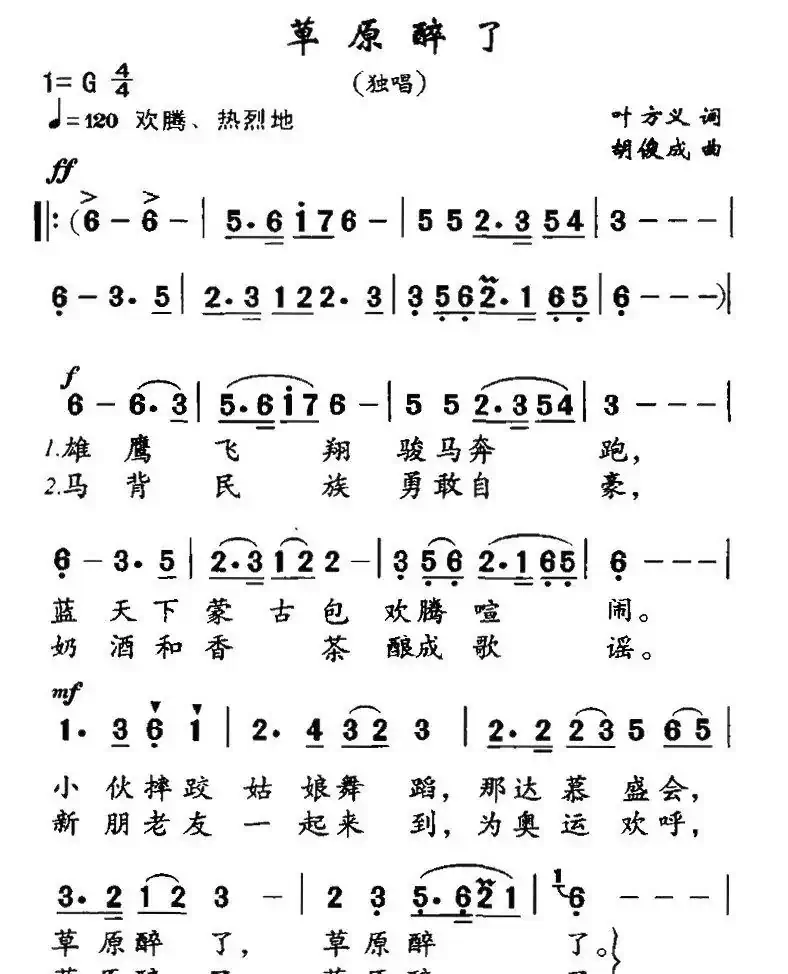 草原醉了
1= G 4/4
(独唱)
♩=120 欢腾、热烈地
叶方义 词
胡俊成 曲
ff
‖: (6 − 6 − | 5. 6 i 7 6 − | 5 5 2. 3 5 4 | 3 − − − |
6 − 3. 5 | 2. 3 1 2 2. 3 | 3 5 6 2. 1 6 5 | 6 − − −) |
f
6 − 6. 3 | 5. 6 i 7 6 − | 5 5 2. 3 5 4 | 3 − − − |
1.雄鹰飞翔骏马奔跑，
2.马背民族勇敢自豪，
6 − 3. 5 | 2. 3 1 2 2 − | 3 5 6 2. 1 6 5 | 6 − − − |
蓝天下蒙古包欢腾喧闹。
奶酒和香茶酿成歌谣。
mf
1. 3 6 1 | 2. 4 3 2 3 | 2. 2 2 3 5 6 5 |
小伙摔跤姑娘舞蹈，那达慕盛会，
新朋老友一起来到，为奥运欢呼，
3. 2 1 2 3 − | 2 3 5. 6 2 1 | 1 6 − − − |
草原醉了，草原醉了。}